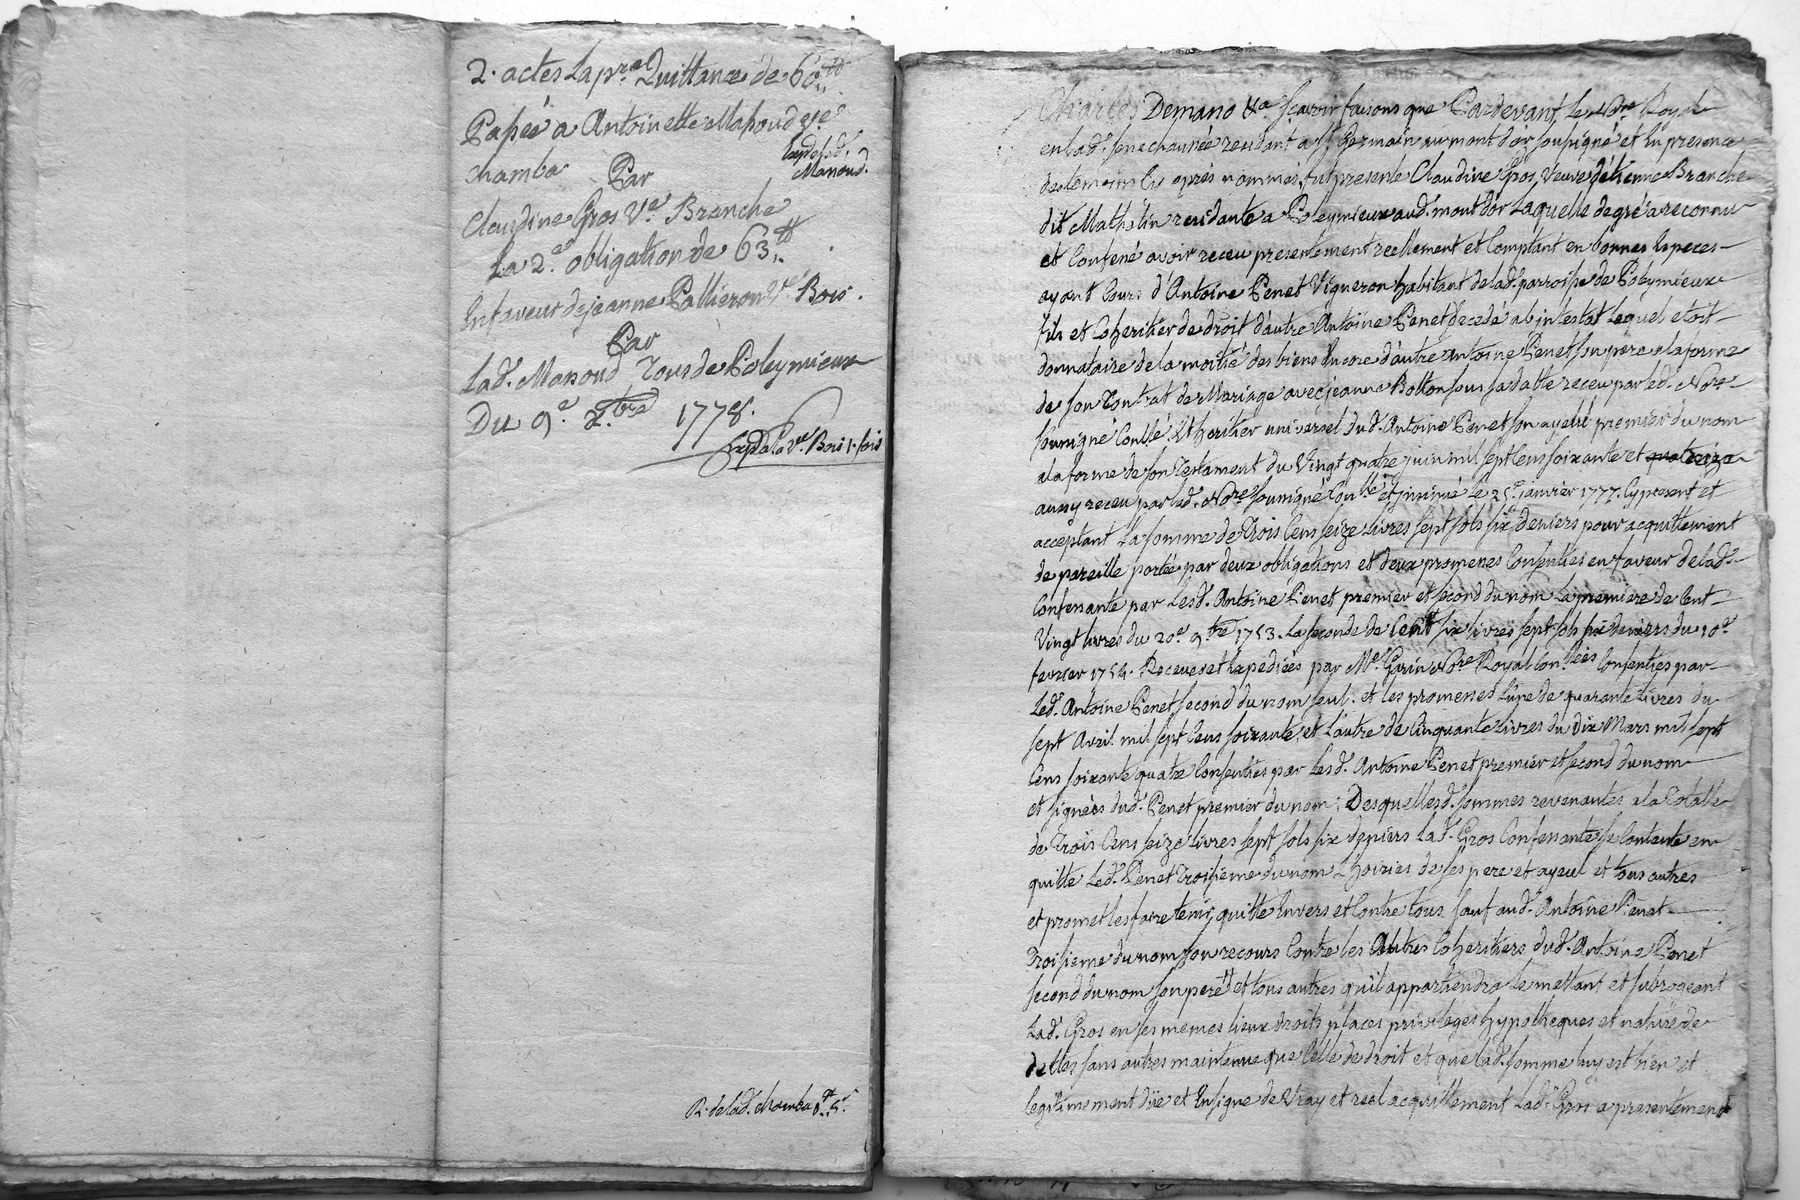 2. actes La pre. Quittance de 60.tt
Passée a Antoinette Massoud ve.
chamba Par
Exp. ded.
Massoud.
Claudine Gros Ve. Branche
La 2e. obligation de 63.tt
En faveur de jeanne Pallieron Ve. Bois.
Par
Lad. Massoud Tous de Poleymieux
Du 9e. xbre
Exp. a la ve. Bois 1. fois
R. de lad. chamba
Charles Demano &a. scavoir faisons que Pardevant le Nore. Royal
en lad. senechaussée residant a St. Germain au mont d'or soussigné et En presence
des temoins Cy après nommés, fut presente Claudine Gros, Veuve d'étienne Branche
dit Mathelin residante a Poleymieux aud. mont d'or Laquelle de gré a reconnu
et Confessé avoir receu presentement reellement et Comptant en bonnes Especes
ayant Cours d'Antoine Penet Vigneron habitant de lad. parroisse de Poleymieux
fils et Coheritier de droit d'autre Antoine Penet decedé ab intestat Lequel etoit
donnataire de la moitié des biens Encore d'autre Antoine Penet son pere a la forme
de son Contrat de Mariage avec jeanne Botton sous sa datte receu par led. Nore.
soussigné Conllé. Et heritier universel dud. Antoine Penet son ayeul premier du nom
a la forme de son Testament du Vingt quatre juin mil sept Cens soixante et quatorze
aussy receu par led. Nore. soussigné Conllé. et insinué Le 25e. janvier 1777. Cy present et
acceptant La somme de Trois Cens seize Livres sept sols six deniers pour acquittement
de pareille portée par deux obligations et deux promesses Consenties en faveur de lad.
Confessante par Lesd. Antoine Penet premier et second du nom La premiere de Cent
Vingt livres du 20e. 9bre 1753. La seconde de Cent six livres sept sols six deniers du 10e.
fevrier 1754. Receues et Expediées par Me. Guerin Nore. Royal Conllées Consenties par
Led. Antoine Penet second du nom seul. et les promesses L'une de quarante Livres du
sept Avril mil sept Cens soixante, et L'autre de Cinquante Livres du Dix Mars mil sept
Cens soixante quatre Consenties par Lesd. Antoine Penet premier et second du nom
et signées dud. Penet premier du nom; Desquelles d. sommes revenantes a la Totalle
de Trois Cens seize Livres sept sols six deniers Lad. Gros Confessante se Contente en
quitte Led. Penet Troisieme du nom L'hoiries de ses pere et ayeul et tous autres
et promet Les faire tenir, quitte Envers et Contre tous sauf aud. Antoine Penet
Troisieme du nom son recours Contre les Autres Coheritiers dud. Antoine Penet
second du nom son pere et tous autres qu'il appartiendra Le mettant et subrogeant
Lad. Gros en ses memes lieux droits places privileges hypotheques et nature de
dettes sans autres maintenue que Celle de droit et que lad. somme luy est bien et
Legitimement düe et En signe de Vray et real acquittement Lad. Gros a presentement